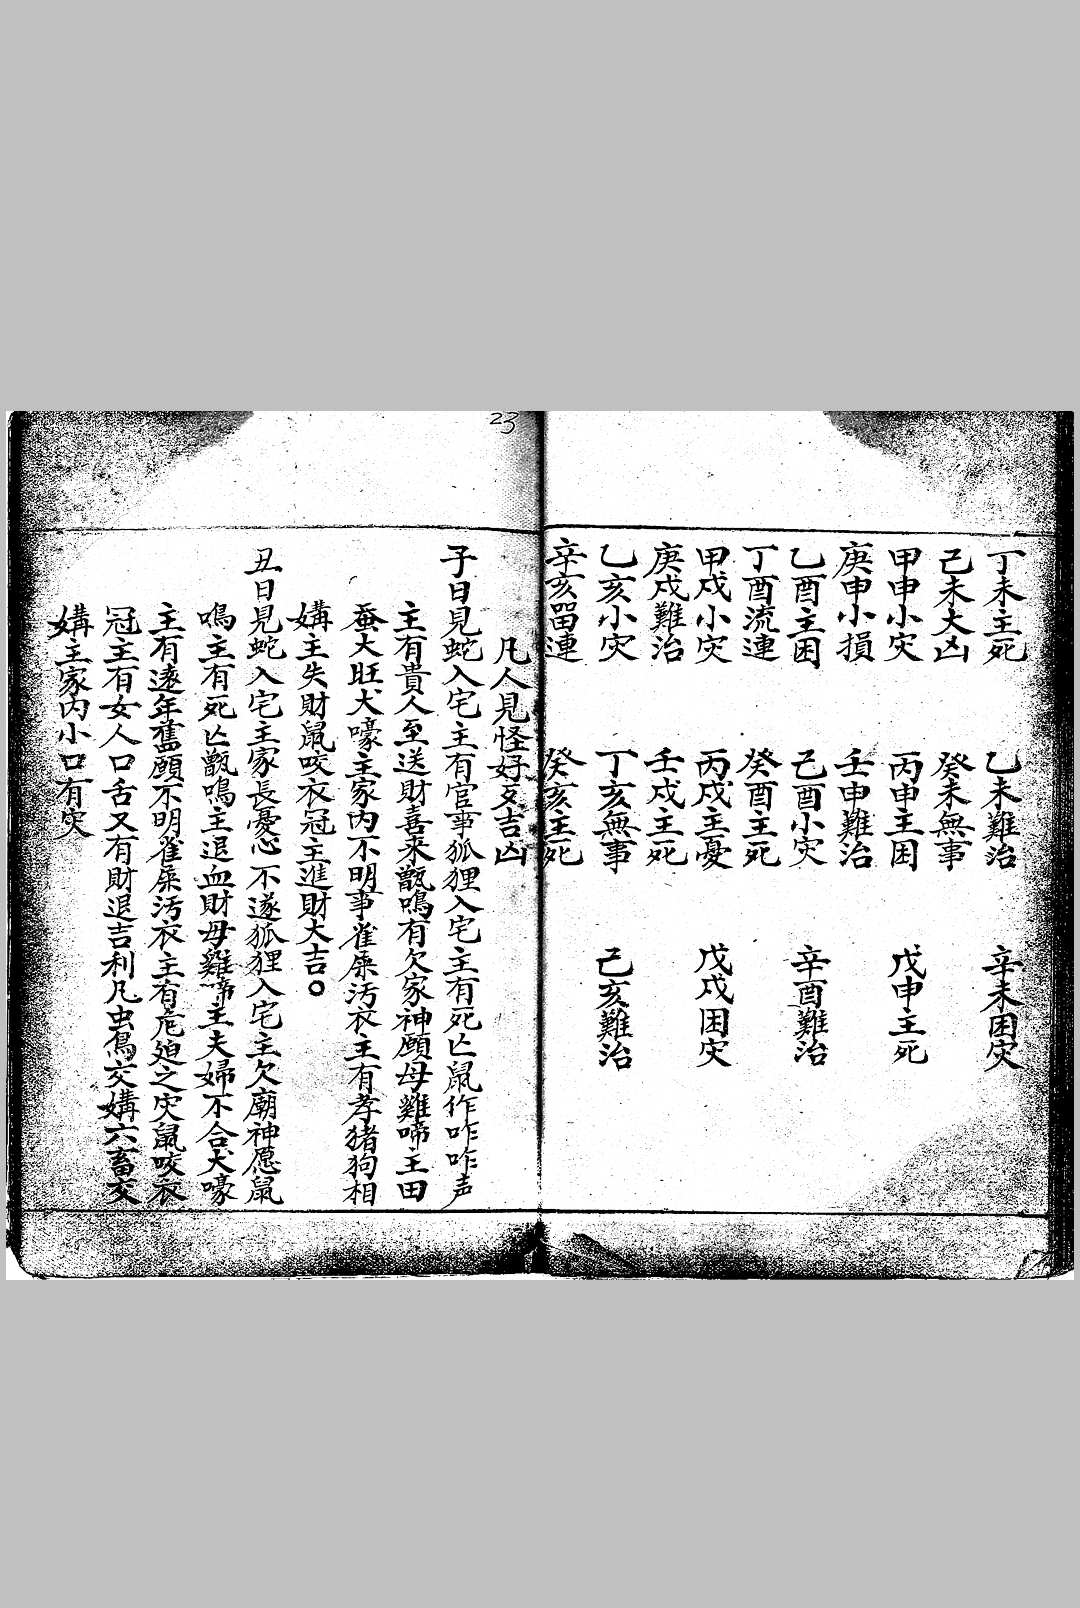 23
丁未主死　乙未難治　辛未困灾
己未大凶　癸未無事
甲申小灾　丙申主困　戊申主死
庚申小損　壬申難治
乙酉主困　己酉小灾　辛酉難治
丁酉流連　癸酉主死
甲戍小灾　丙戍主憂　戊戍困灾
庚戍難治　壬戍主死
乙亥小灾　丁亥無事　己亥難治
辛亥畄連　癸亥主死
凡人見怪好歹吉凶
子日見蛇入宅主有官事狐狸入宅主有死亡鼠作咋咋声
主有貴人至送財喜来甑鳴有欠家神願母雞啼主田
蚕大旺犬嚎主家内不明事雀屎汚衣主有孝猪狗相
媾主失財鼠咬衣冠主進財大吉。
丑日見蛇入宅主家長憂心不遂狐狸入宅主欠廟神愿鼠
鳴主有死亡甑鳴主退血財母雞啼主夫婦不合犬嚎
主有遠年舊願不明雀屎汚衣主有危廹之灾鼠咬衣
冠主有女人口舌又有財退吉利凡虫鳥交媾六畜交
媾主家内小口有灾